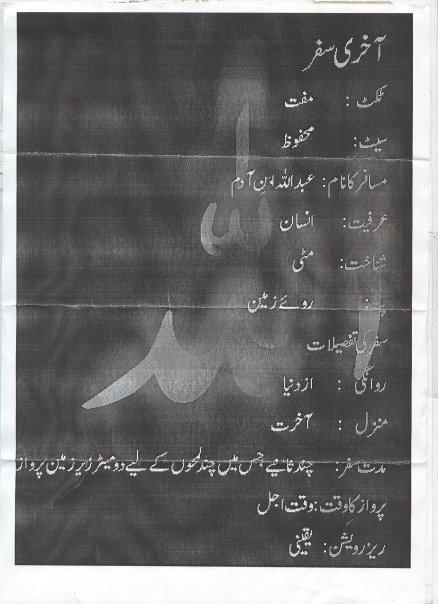 آخری سفر
ٹکٹ : مفت
سیٹ: محفوظ
مسافر کا نام: عبداللہ ابن آدم
عرفیت: انسان
شناخت: مٹی
پتہ: روئے زمین
سفر کی تفصیلات
روانگی : از دنیا
منزل : آخرت
مدت سفر: چند ثانیے جس میں چند لمحوں کے لیے دو میٹر زیر زمین پرواز
پرواز کا وقت: وقت اجل
ریزرویشن: یقینی
اللہ